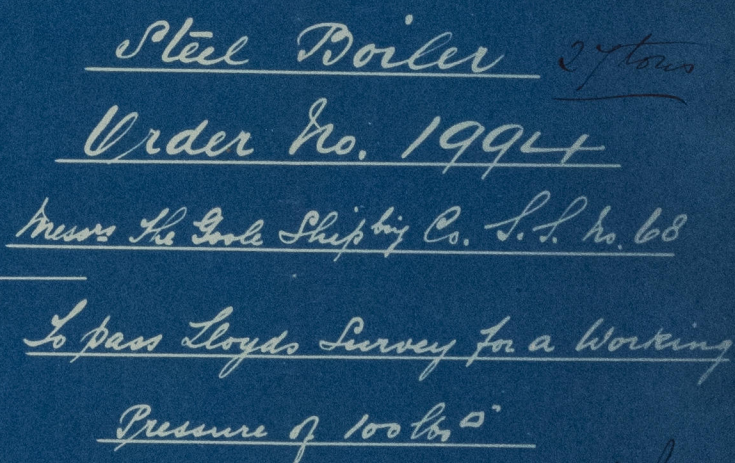 Steel Boiler 27 tons
Order No. 1994
Messrs The Goole Shipbg Co. S.S. No. 68
To pass Lloyds Survey for a Working
Pressure of 100 lbs □"